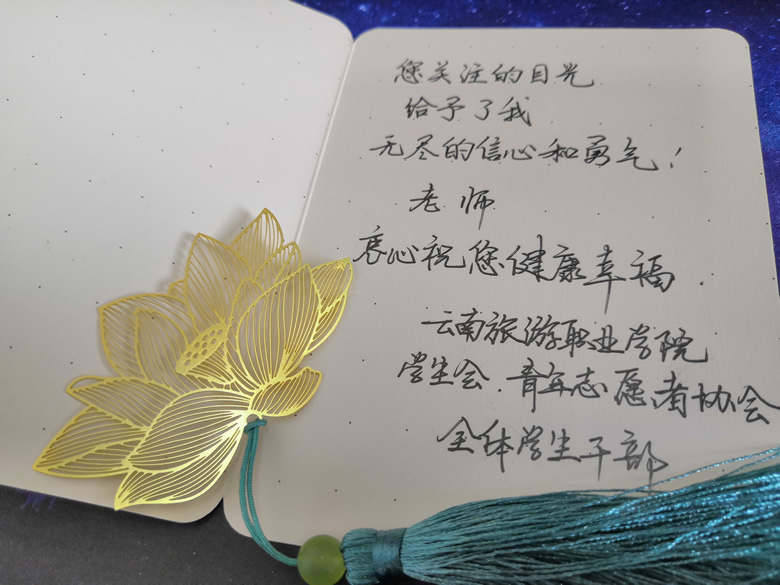 您关注的目光
给予了我
无尽的信心和勇气！
老师
衷心祝您健康幸福.
云南旅游职业学院
学生会.青年志愿者协会
全体学生干部